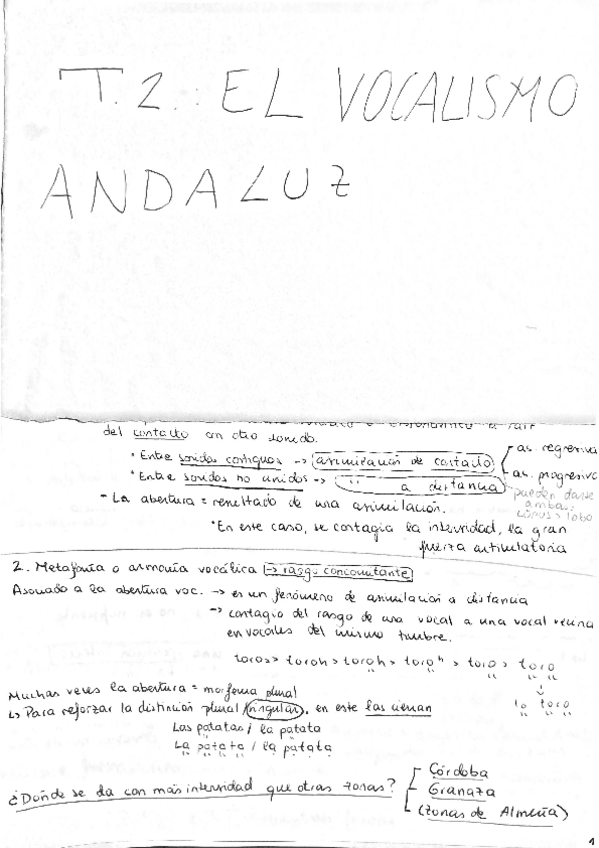 T.2.: EL VOCALISMO
ANDALUZ
del contacto con otro sonido.
• Entre sonidos contiguos -> asimilación de contacto
as. regresiva
• Entre sonidos no unidos -> " " a distancia
as. progresiva
pueden darse
ambas.
lobo
- La abertura = resultado de una asimilación.
• En este caso, se contagia la intensidad, la gran
fuerza articulatoria
2. Metafonía o armonía vocálica -> rasgo concomitante
Asociado a la abertura voc. -> es un fenómeno de asimilación a distancia
-> contagio del rasgo de una vocal a una vocal vecina
en vocales del mismo timbre.
toros > toroh > toroh > toroʰ > toro > toro
Muchas veces la abertura = morfema plural
lo toro
↳ Para reforzar la distinción plural/singular, en este las cierran
Las patatas / la patata
La patata / la patata
¿Dónde se da con más intensidad que otras zonas?
Córdoba
Granaza
(zonas de Almería)
1